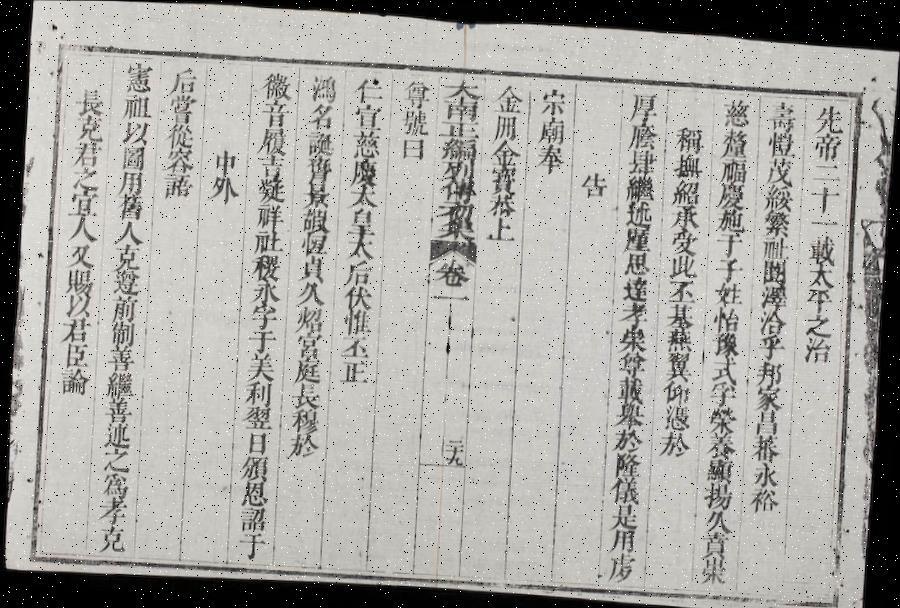 先帝二十一載太平之治
壽愷茂綏繁祉團澤洽乎邦家昌蕃永裕
慈釐福慶施于子姓怡豫式孚榮養顯揚久責
稱撫紹承受此丕基燕翼仰慿於
厚陰肆繼述厪思達孝崇尊載舉於隆儀是用虔
告
宗廟奉
金冊金寶恭上
大南正編列傳二集 卷一 二十九
尊號曰
仁宣慈慶太皇太后伏惟丕正
鴻名誕膺景嘏恆貞久炤宮庭長穆於
徽音履吉凝祥社稷永孚于美利翌日頒恩詔于
中外
后嘗從容語
憲祖以圖用舊人克遵前制善繼善述之為孝克
長克君之宜人又賜以君臣論